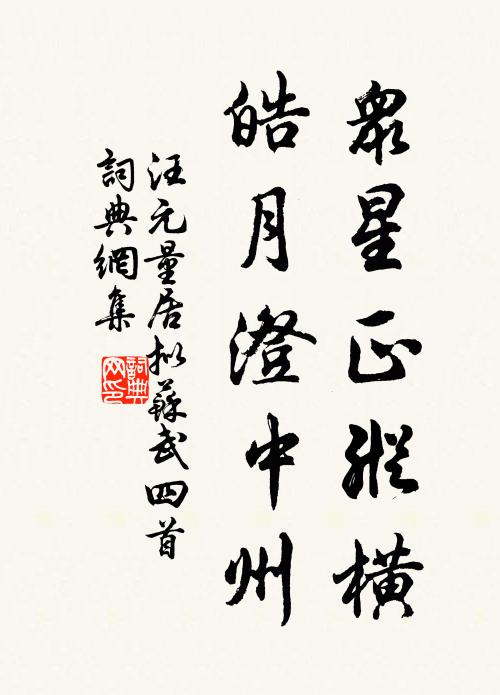 眾星正縱橫
皓月澄中州
汪元量居擬蘇武四首
詞典網集
詞典网印